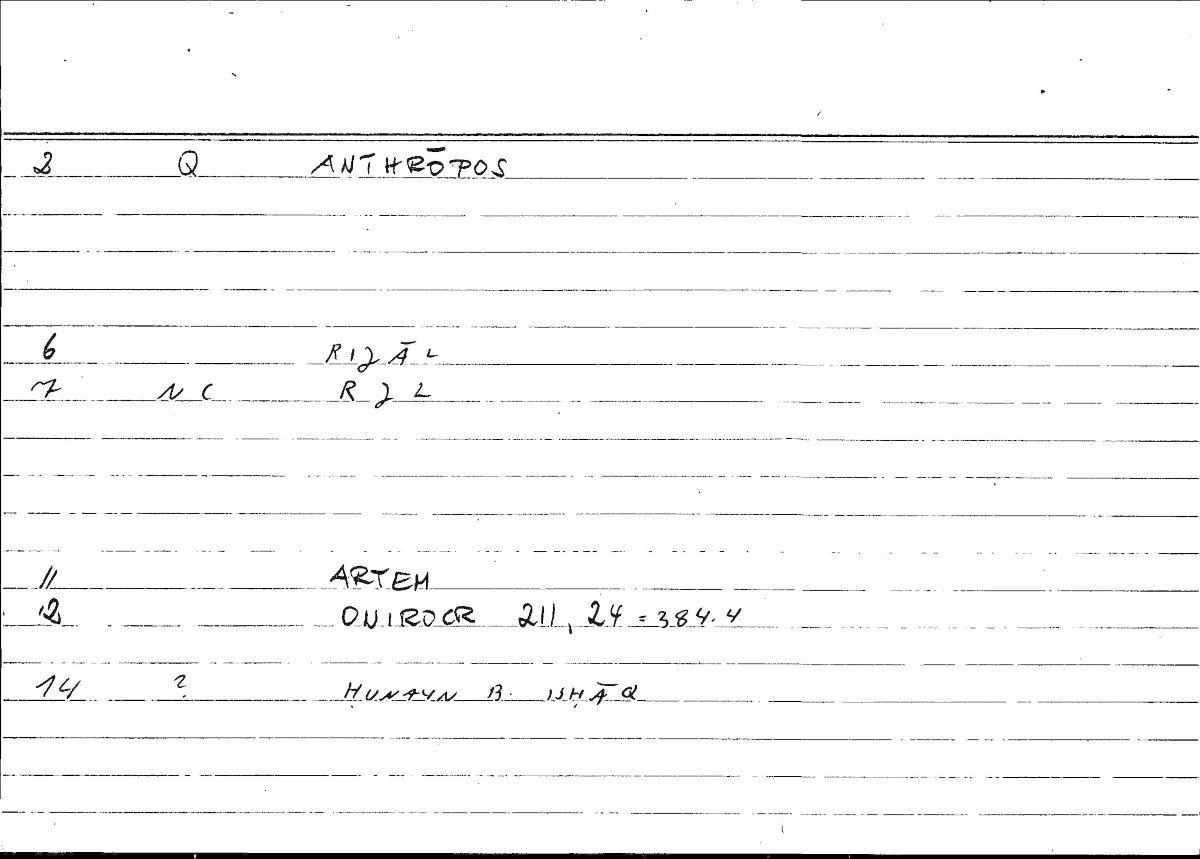 2 Q ANTHRŌPOS
6 RIJĀL
7 NC RJL
11 ARTEM
12 ONIROCR 211, 24 = 384.4
14 ? ḤUNAYN B. ISḤĀQ